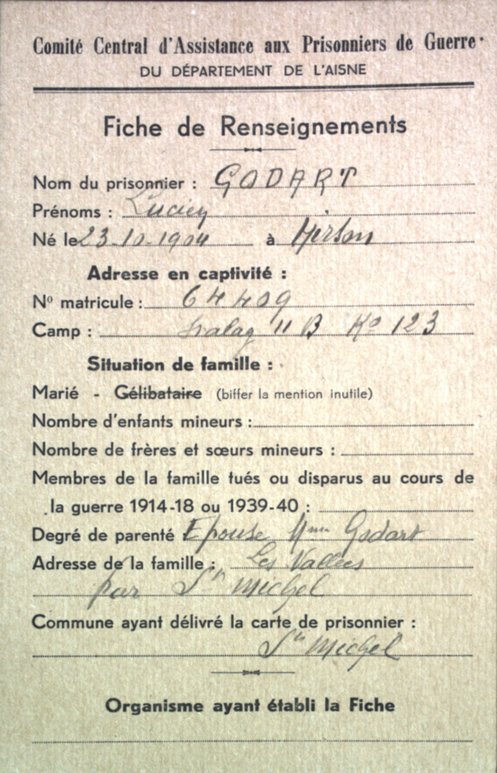 Comité Central d'Assistance aux Prisonniers de Guerre
DU DÉPARTEMENT DE L'AISNE
Fiche de Renseignements
Nom du prisonnier : GODART
Prénoms : Lucien
Né le 23-10-1904 à Hirson
Adresse en captivité :
No matricule : 64409
Camp : Stalag II B Ko 123
Situation de famille :
Marié - Célibataire (biffer la mention inutile)
Nombre d'enfants mineurs :
Nombre de frères et sœurs mineurs :
Membres de la famille tués ou disparus au cours de
la guerre 1914-18 ou 1939-40 :
Degré de parenté Epouse Mme Godart
Adresse de la famille : Les Vallées
par St Michel
Commune ayant délivré la carte de prisonnier :
St Michel
Organisme ayant établi la Fiche